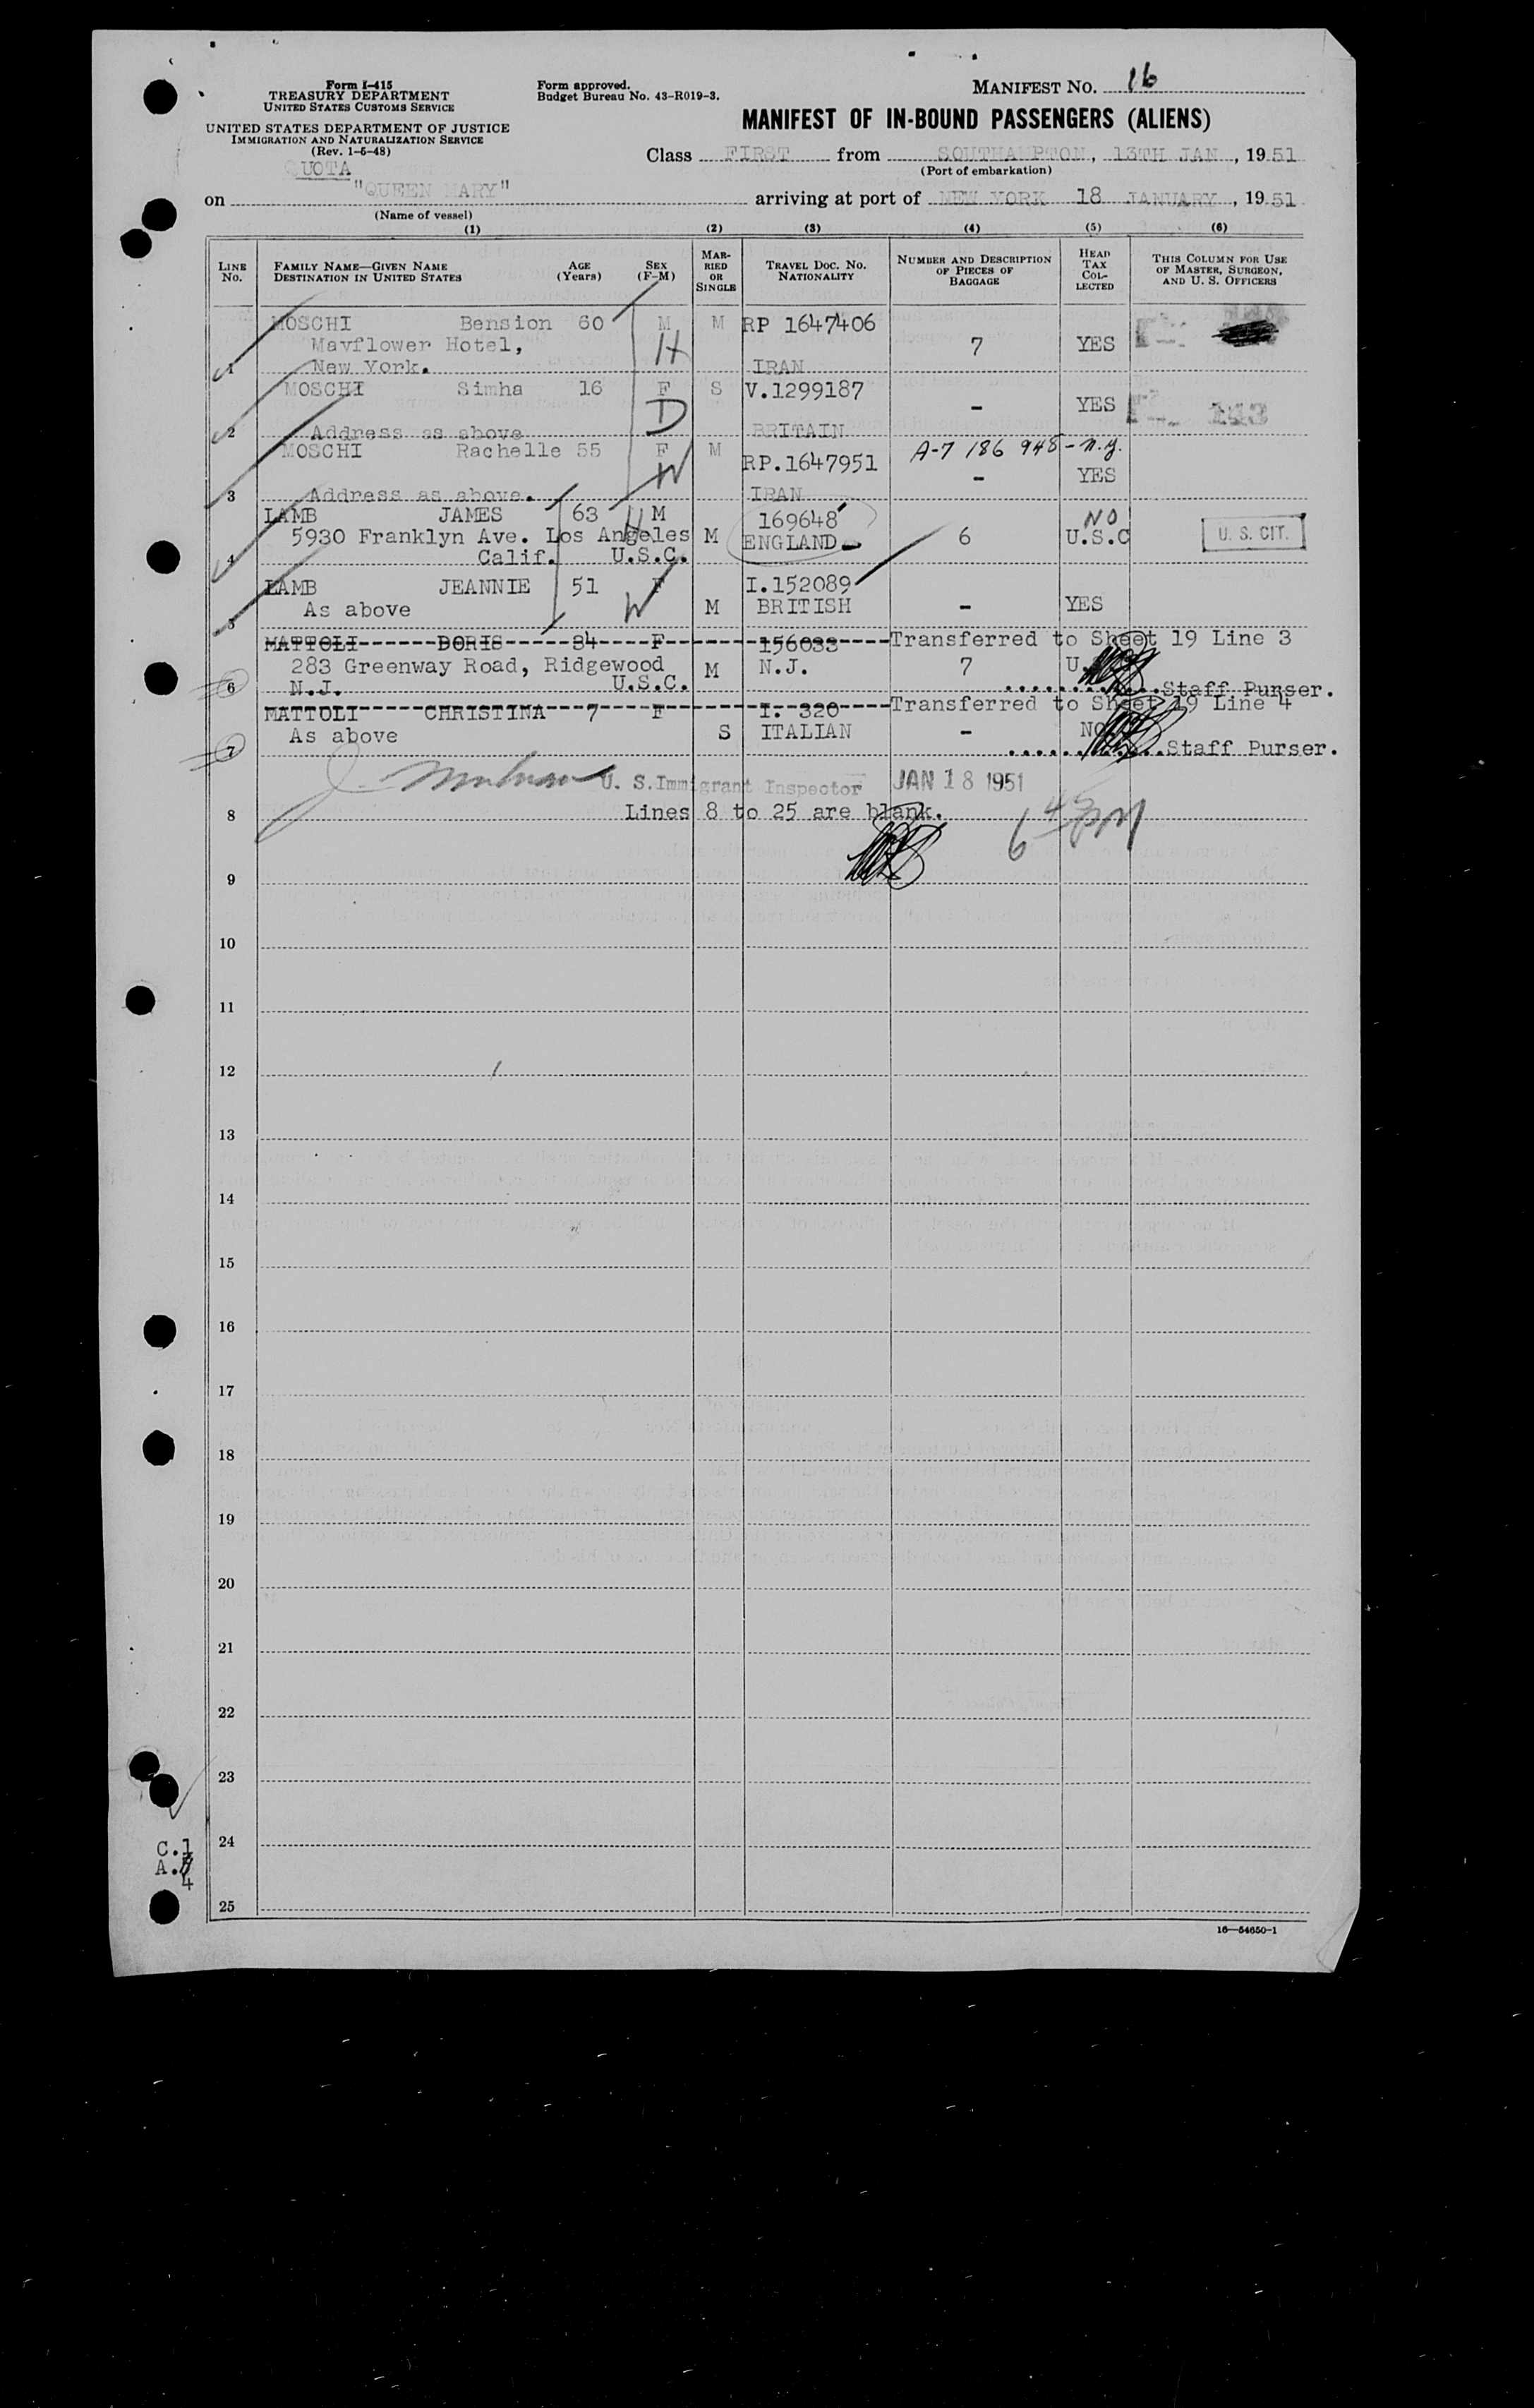 Form I-415
TREASURY DEPARTMENT
UNITED STATES CUSTOMS SERVICE
UNITED STATES DEPARTMENT OF JUSTICE
IMMIGRATION AND NATURALIZATION SERVICE
(Rev. 1-5-48)
Form approved.
Budget Bureau No. 43-R019-3.
MANIFEST NO. 16
MANIFEST OF IN-BOUND PASSENGERS (ALIENS)
Class FIRST from SOUTHAMPTON, 13TH JAN, 1951
(Port of embarkation)
QUOTA
on "QUEEN MARY" arriving at port of NEW YORK 18 JANUARY, 1951
(Name of vessel)
(1) (2) (3) (4) (5) (6)
LINE NO.
FAMILY NAME—GIVEN NAME
DESTINATION IN UNITED STATES
AGE (Years)
SEX (F-M)
MARRIED OR SINGLE
TRAVEL DOC. NO.
NATIONALITY
NUMBER AND DESCRIPTION OF PIECES OF BAGGAGE
HEAD TAX COLLECTED
THIS COLUMN FOR USE OF MASTER, SURGEON, AND U. S. OFFICERS
MOSCHI Bension 60 M M RP 1647406
Mayflower Hotel, H 7 YES
1 New York. IRAN
MOSCHI Simha 16 F S V.1299187
D - YES 143
2 Address as above BRITAIN
MOSCHI Rachelle 55 F M RP.1647951 A-7 186 948 - N.Y.
W - YES
3 Address as above. IRAN
LAMB JAMES 63 H M 169648 NO
5930 Franklyn Ave. Los Angeles M ENGLAND 6 U.S.C U. S. CIT.
4 Calif. U.S.C.
LAMB JEANNIE 51 F I.152089
As above W M BRITISH - YES
5
MATTOLI DORIS 34 F 156033 Transferred to Sheet 19 Line 3
283 Greenway Road, Ridgewood M N.J. 7 U.
6 N.J. U.S.C. Staff Purser.
MATTOLI CHRISTINA 7 F I. 320 Transferred to Sheet 19 Line 4
As above S ITALIAN - NO
7 Staff Purser.
U. S. Immigrant Inspector JAN 18 1951
8 Lines 8 to 25 are blank. 6 45 PM
9
10
11
12
13
14
15
16
17
18
19
20
21
22
23
24
25
C.1
A.
4
16—54650-1